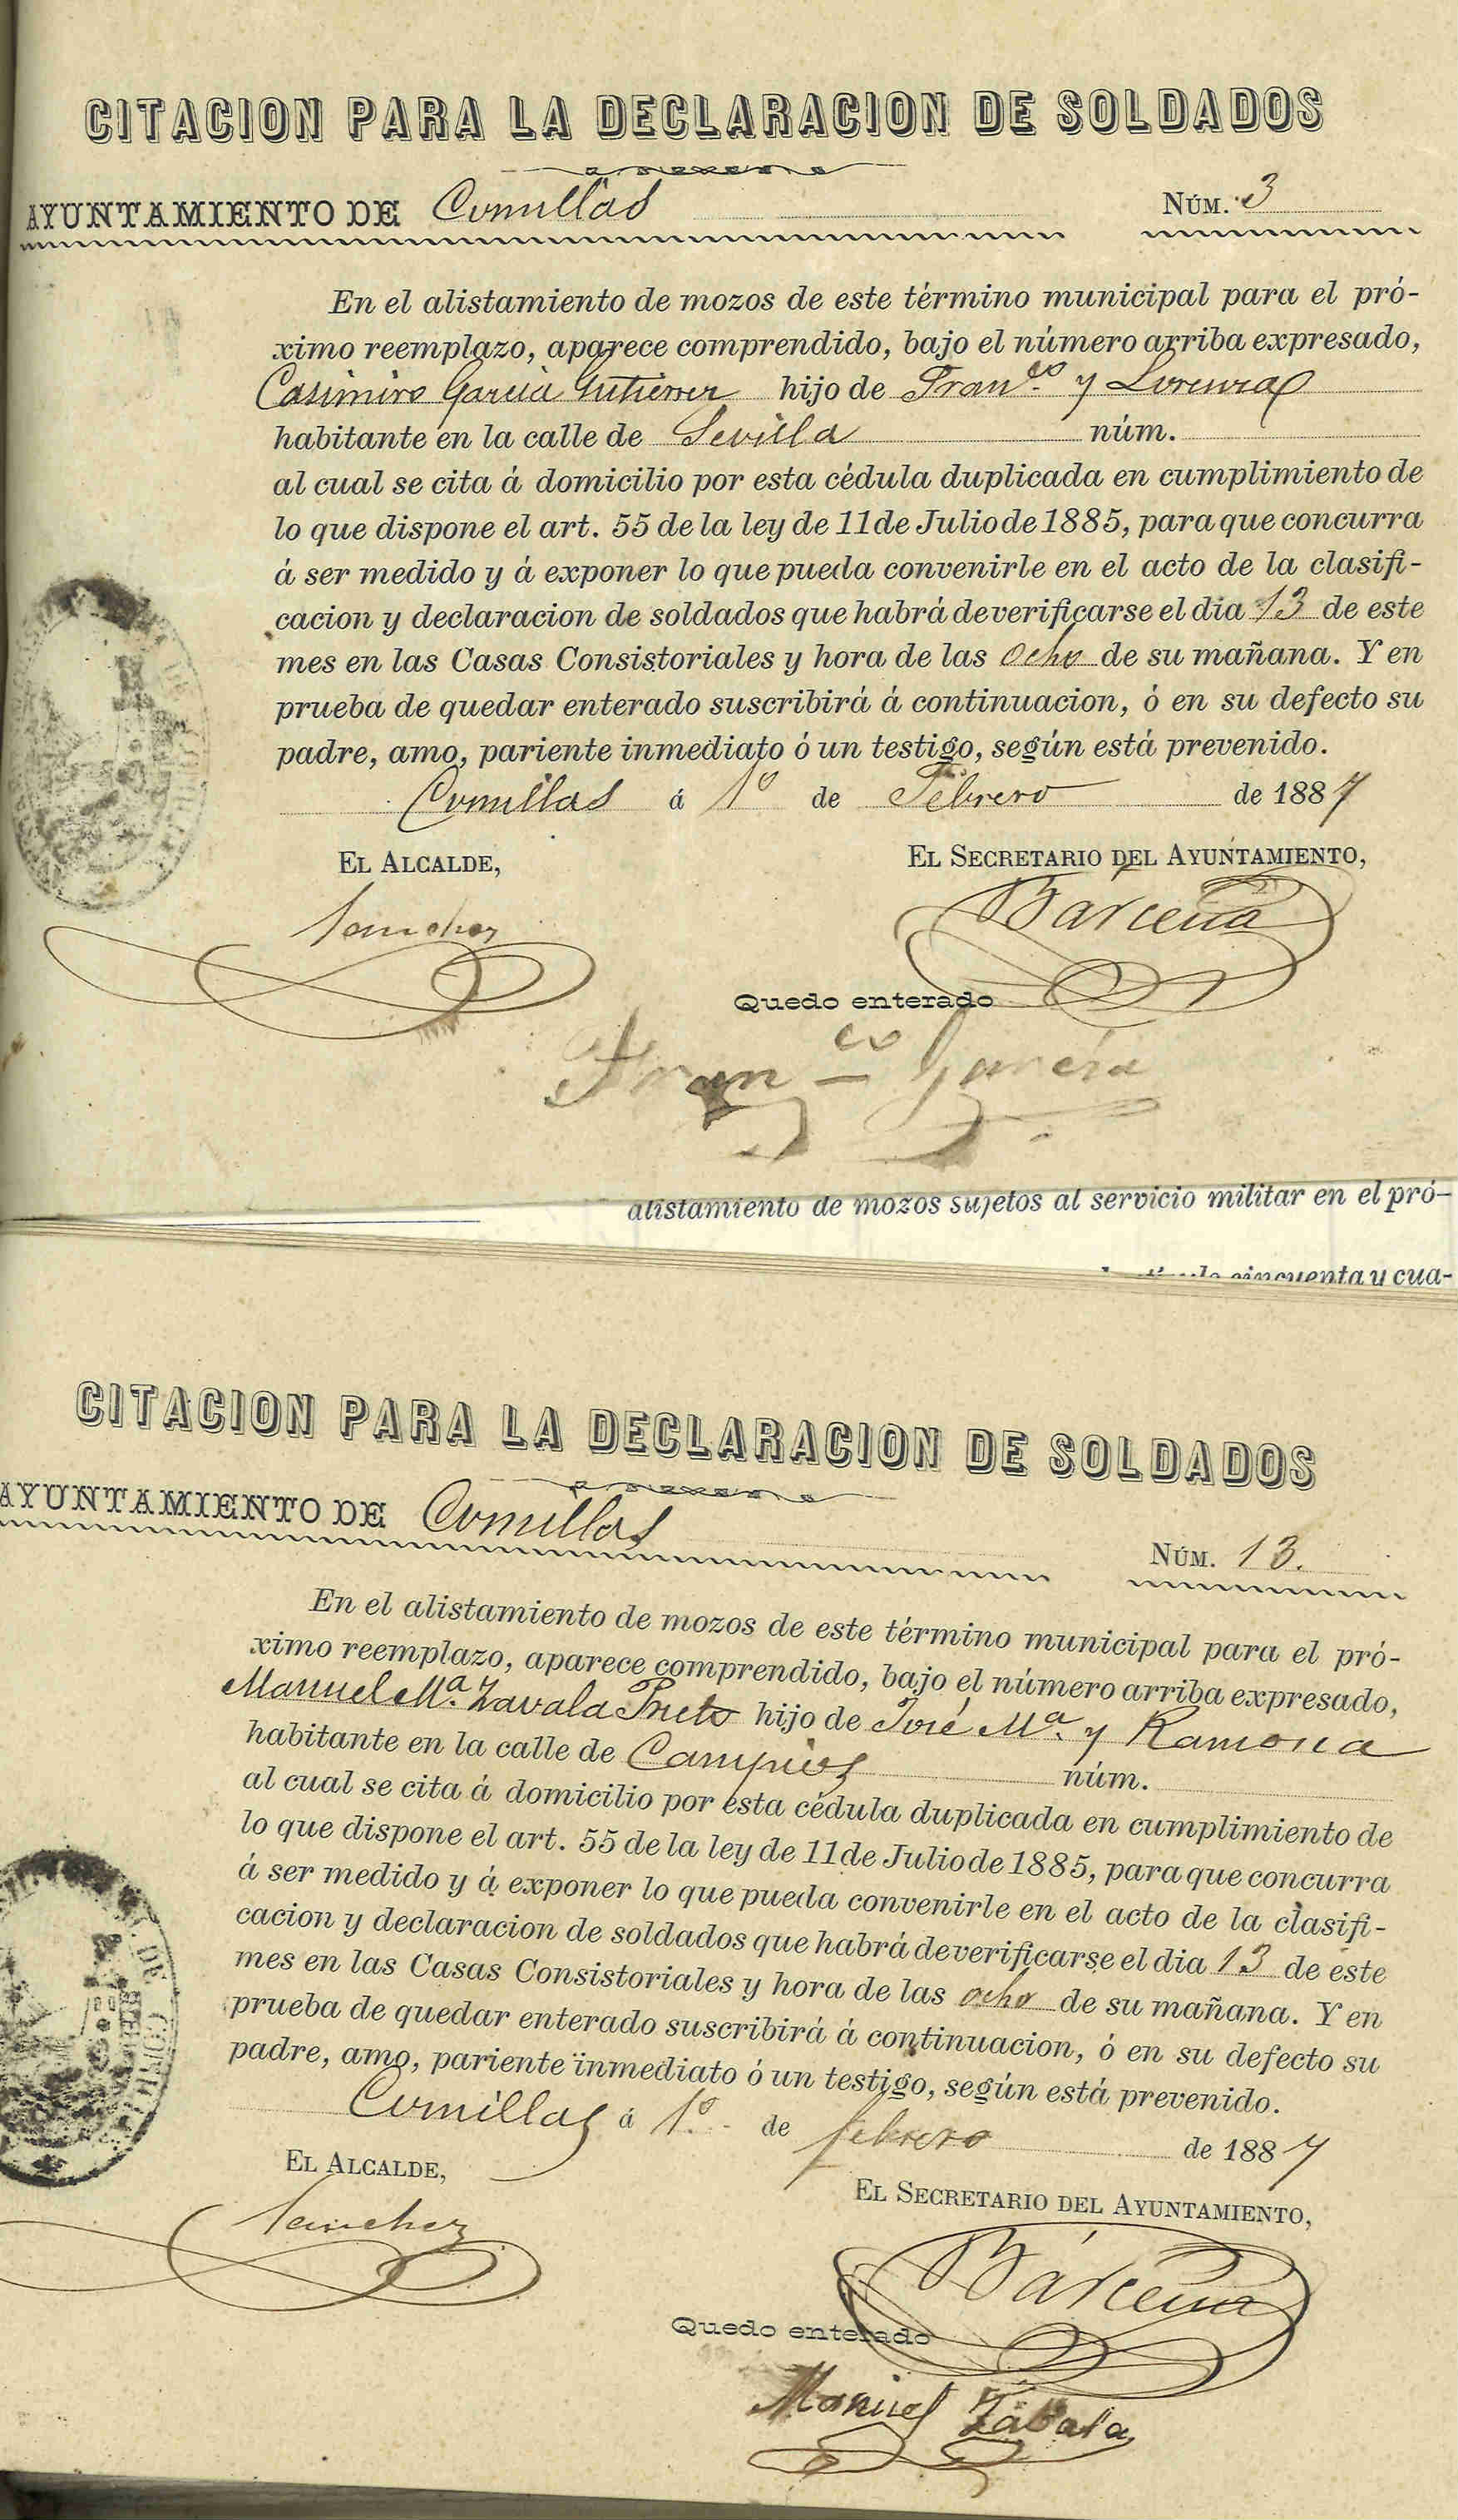 CITACION PARA LA DECLARACION DE SOLDADOS
AYUNTAMIENTO DE Comillas NÚM. 3
En el alistamiento de mozos de este término municipal para el pró-
ximo reemplazo, aparece comprendido, bajo el número arriba expresado,
Casimiro Garcia Gutierrez hijo de Fran.co y Lorenza
habitante en la calle de Sevilla núm.
al cual se cita á domicilio por esta cédula duplicada en cumplimiento de
lo que dispone el art. 55 de la ley de 11 de Julio de 1885, para que concurra
á ser medido y á exponer lo que pueda convenirle en el acto de la clasifi-
cacion y declaracion de soldados que habrá de verificarse el dia 13 de este
mes en las Casas Consistoriales y hora de las ocho de su mañana. Y en
prueba de quedar enterado suscribirá á continuacion, ó en su defecto su
padre, amo, pariente inmediato ó un testigo, según está prevenido.
Comillas á 1º de Febrero de 1887
EL ALCALDE, EL SECRETARIO DEL AYUNTAMIENTO,
Sanchez Bárcena
Quedo enterado
Fran.co García
alistamiento de mozos sujetos al servicio militar en el pró-
cincuenta y cua-
CITACION PARA LA DECLARACION DE SOLDADOS
AYUNTAMIENTO DE Comillas NÚM. 13.
En el alistamiento de mozos de este término municipal para el pró-
ximo reemplazo, aparece comprendido, bajo el número arriba expresado,
Manuel Mª. Zavala Prieto hijo de José Mª. y Ramona
habitante en la calle de Campíos núm.
al cual se cita á domicilio por esta cédula duplicada en cumplimiento de
lo que dispone el art. 55 de la ley de 11 de Julio de 1885, para que concurra
á ser medido y á exponer lo que pueda convenirle en el acto de la clasifi-
cacion y declaracion de soldados que habrá de verificarse el dia 13 de este
mes en las Casas Consistoriales y hora de las ocho de su mañana. Y en
prueba de quedar enterado suscribirá á continuacion, ó en su defecto su
padre, amo, pariente inmediato ó un testigo, según está prevenido.
Comillas á 1º. de febrero de 1887
EL ALCALDE,
EL SECRETARIO DEL AYUNTAMIENTO,
Sanchez Bárcena
Quedo enterado
Manuel Zabala